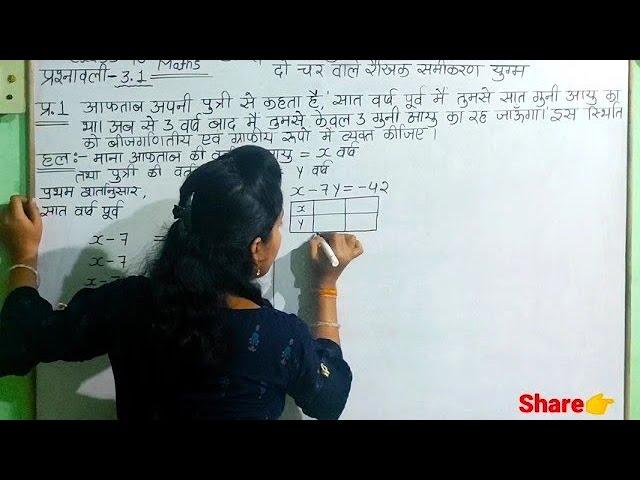 Maths
प्रश्नावली-3.1 दो चर वाले रैखिक समीकरण युग्म
प्र.1 आफताब अपनी पुत्री से कहता है, 'सात वर्ष पूर्व मैं तुमसे सात गुनी आयु का
था। अब से 3 वर्ष बाद मैं तुमसे केवल 3 गुनी आयु का रह जाऊंगा।' इस स्थिति
को बीजगणितीय एवं ग्राफीय रूपों में व्यक्त कीजिए।
हल:- माना आफताब की आयु = x वर्ष
तथा पुत्री की y वर्ष
प्रथम शर्तानुसार,
सात वर्ष पूर्व
x-7 =
x-7
x-7y=-42
x
y
Share